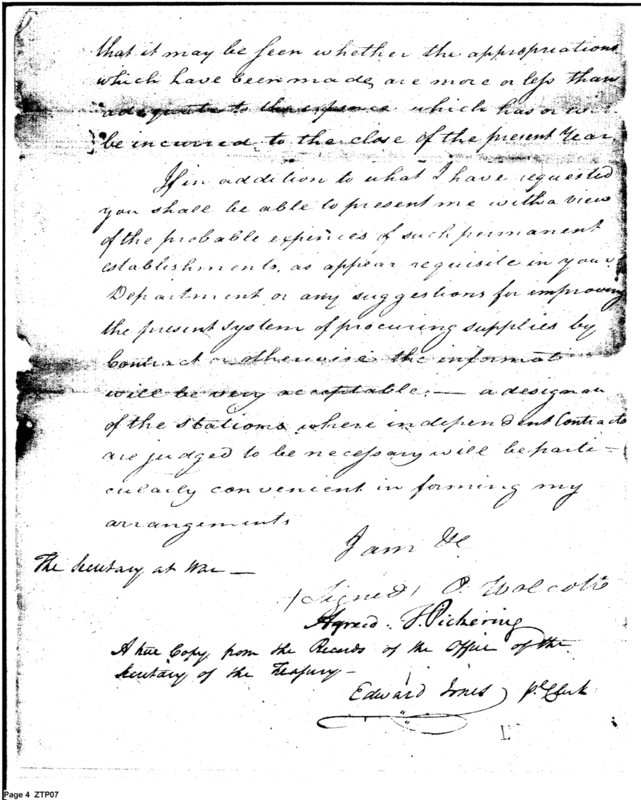 that it may be seen whether the appropriations
which have been made, are more or less than
adequate to the expence which has or
be incurred to the close of the present Year
If in addition to what I have requested
you shall be able to present me with a view
of the probable expences of such permanent
establishments, as appear requisite in your
Department or any suggestions for improving
the present system of procuring supplies by
Contract or otherwise the informati
will be very acceptable; — a design
of the stations where independent Contracts
are judged to be necessary will be parti=
cularly convenient in forming my
arrangements
I am &c
The Secretary at War —
(Signed) O. Wolcott
Agreed. T. Pickering
A true Copy, from the Records of the Office of the
Secretary of the Treasury —
Edward Jones
Page 4 ZTP07